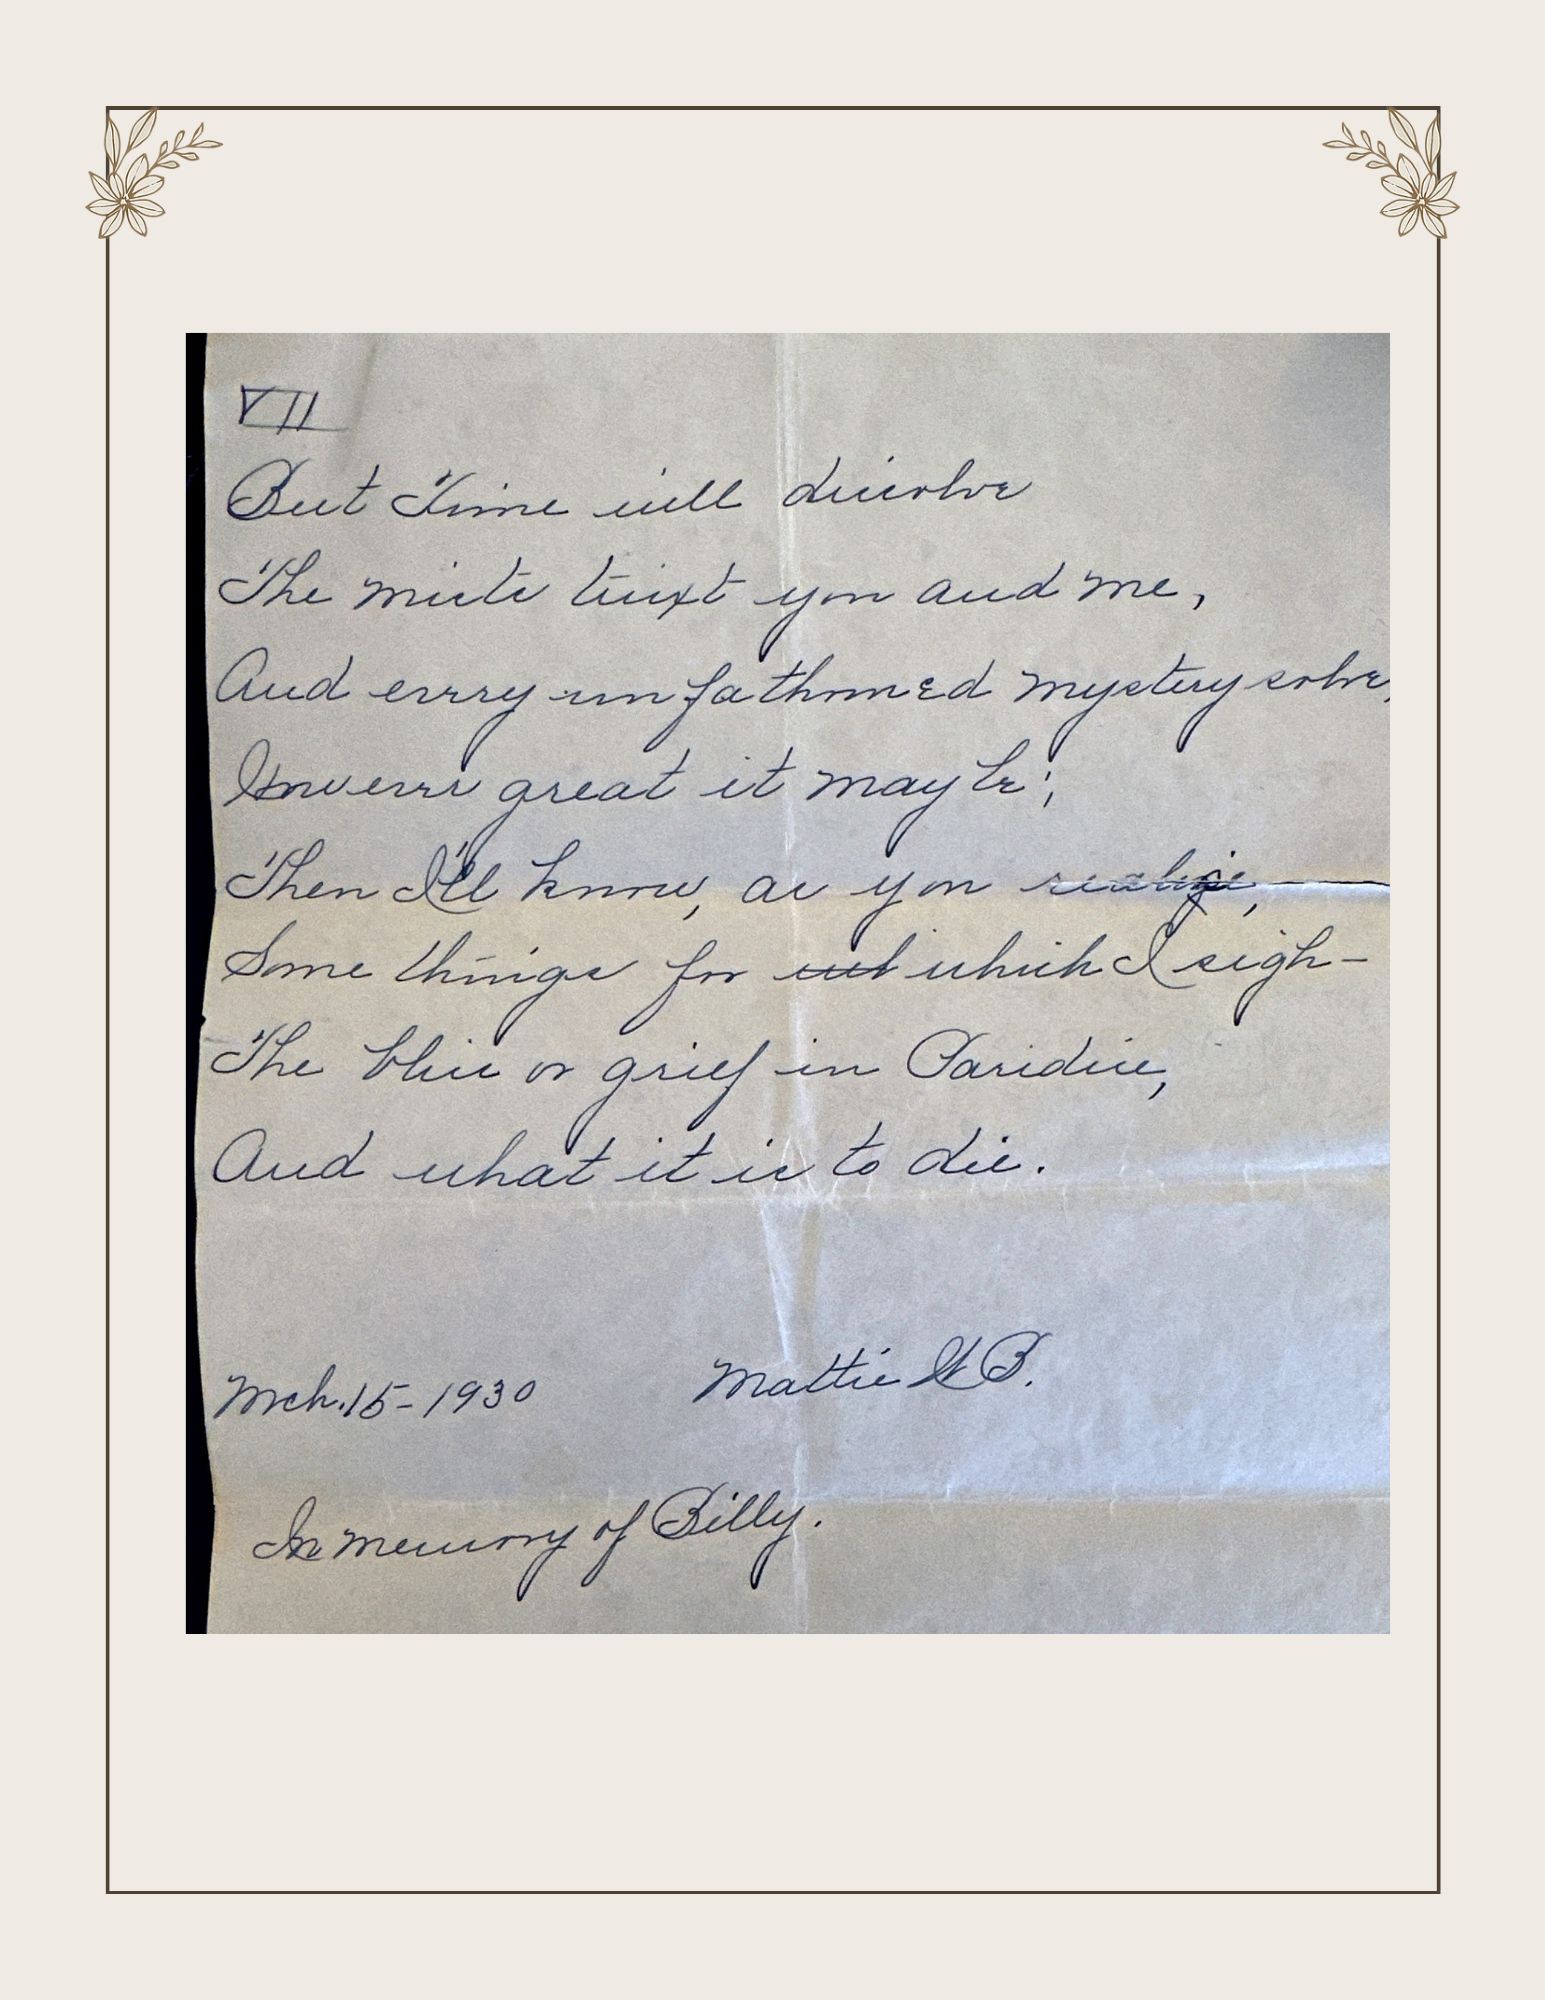 VII
But Time will dissolve
The mists twixt you and me,
And every unfathomed mystery solve,
However great it may be;
Then I'll know, as you realize,
Some things for which I sigh—
The bliss or grief in Paridise,
And what it is to die.
Mch. 15 - 1930 Mattie W B.
In memory of Billy.